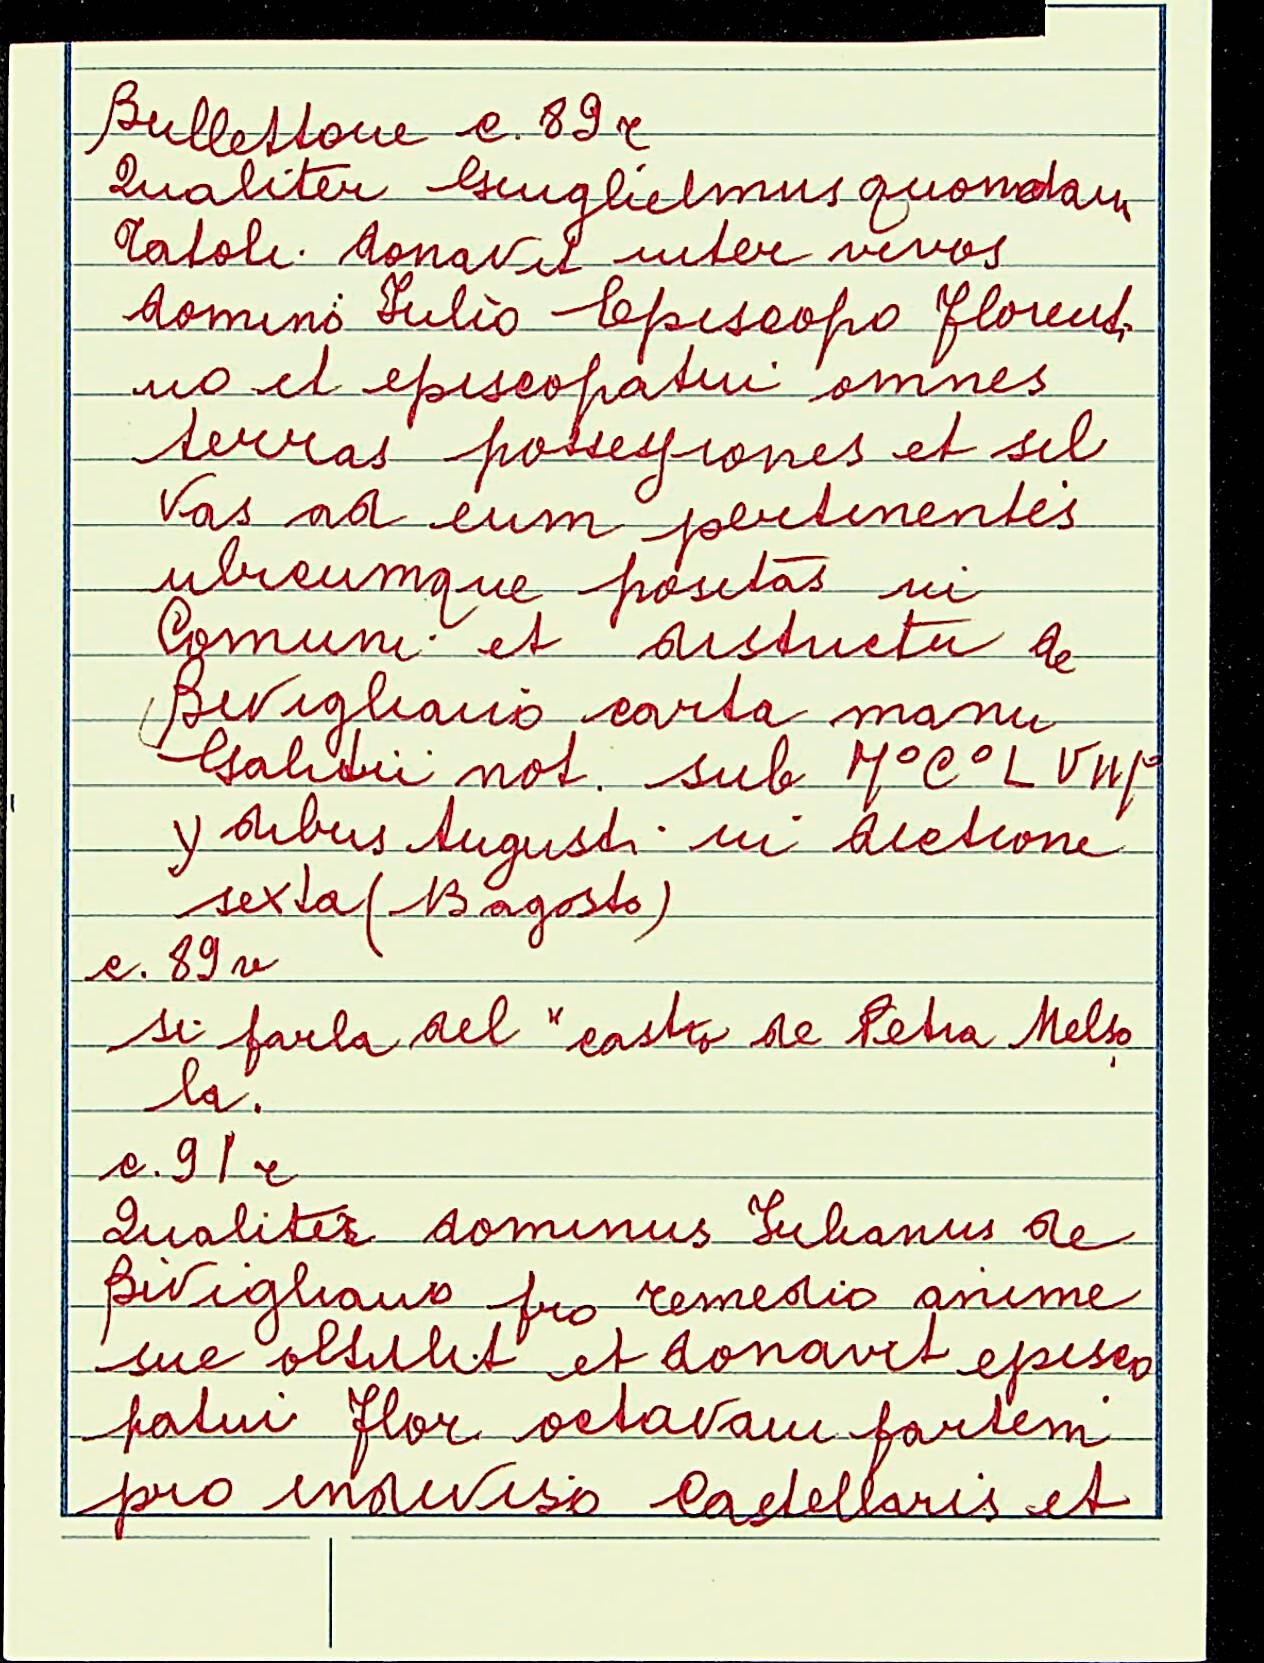 Bullettone c. 89 r
Qualiter Guglielmus quondam
Tatoli. donavit inter vivos
domino Iulio Episcopo Florenti
no et episcopatui omnes
terras possessiones et sil
vas ad eum pertinentes
ubicumque positas in
Comuni et districtu de
Bivigliano carta manu
not. sub M°C°L VIII°
y dibus Augusti in dictione
sexta (13 agosto)
c. 89 v
si parla del "castro de Petra Melso
la.
c. 91 r
Qualiter dominus Iulianus de
Bivigliano pro remedio anime
sue obtulit et donavit episco
patui Flor. octavam partem
pro indiviso Castellaris et